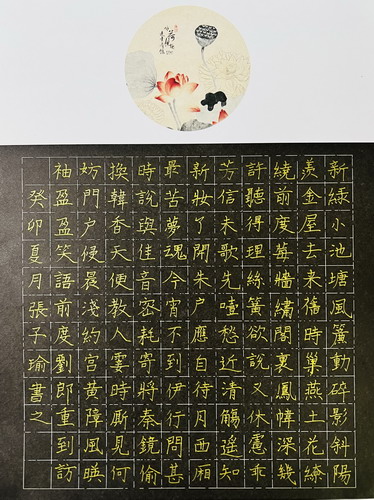 新綠小池塘風簾動碎影斜陽
羨金屋去来舊時巢燕土花繚
繞前度莓牆繡閣裏鳳幃深幾
許聽得理絲簧欲說又休慮乖
芳信未歌先噎愁近清觴遥知
新妝了開朱户應自待月西廂
最苦夢魂今宵不到伊行問甚
時說與佳音密耗寄將秦鏡偷
換韓香天便教人霎時厮見何
妨門户侵晨淺約宮黄障風映
袖盈盈笑語前度劉郎重到訪
癸卯夏月張子瑜書之